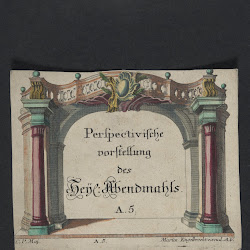 Perspectivische
vorstellung
des
Heyl: Abendmahls
A. 5.
C. P. Maj. A. 5. Martin Engelbrecht excud. A.V.